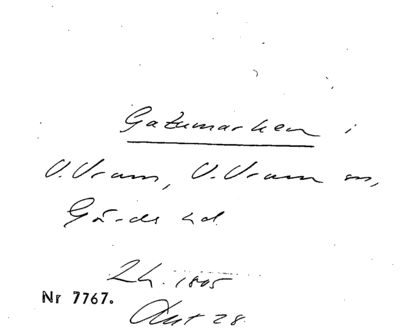 Gatumarken i
V. Vram, V. Vram sn,
Gärds hd.
1805
Nr 7767.
Akt 28.